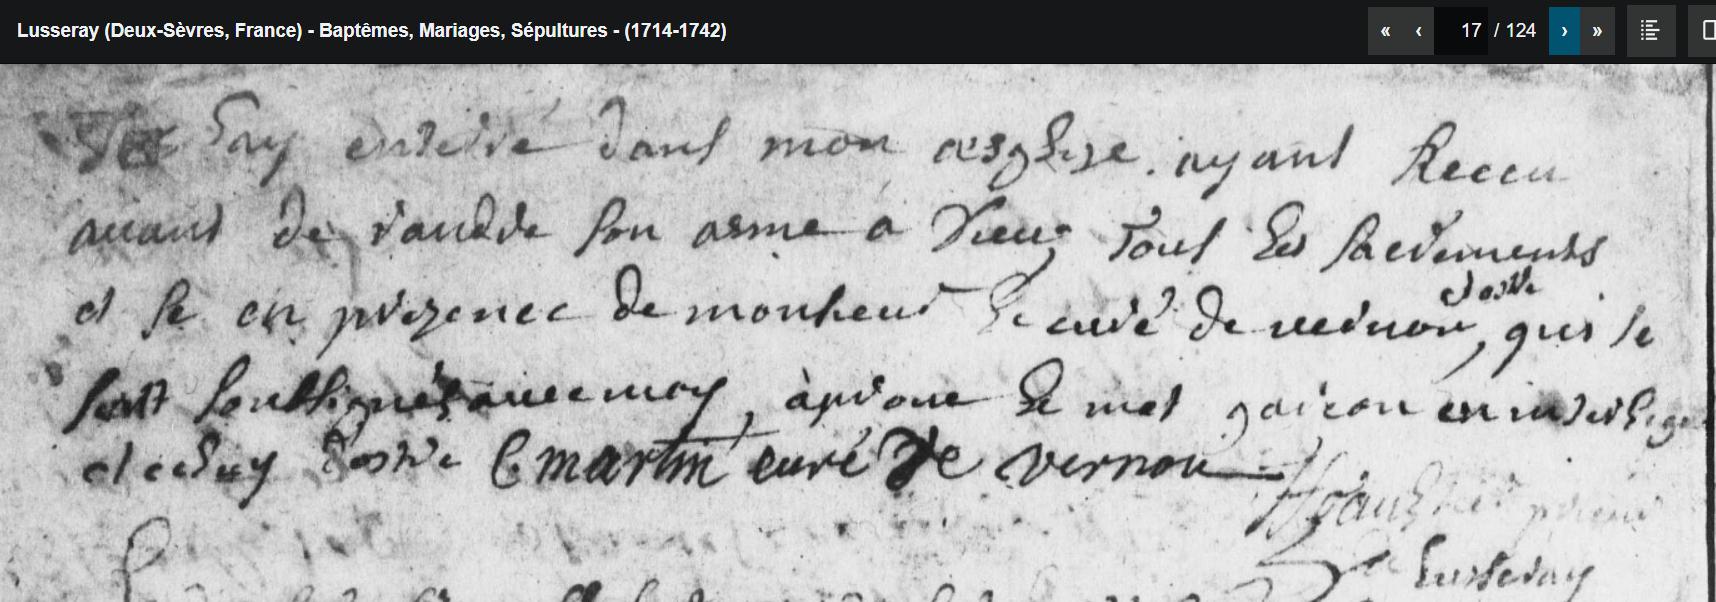 Lusseray (Deux-Sèvres, France) - Baptêmes, Mariages, Sépultures - (1714-1742)
« ‹ 17 / 124 › »
Lay enterré dans mon esglize. ayant Receu
auant de randre son asme a Dieu, tous Les sacrements
et se en prezence de monsieur Le curé de vernou, qui se
dostre
soubsignés avec moy, aprouve Le mot en interligne
et celuy dostre C martin curé de vernou
prieur
de Lusseray